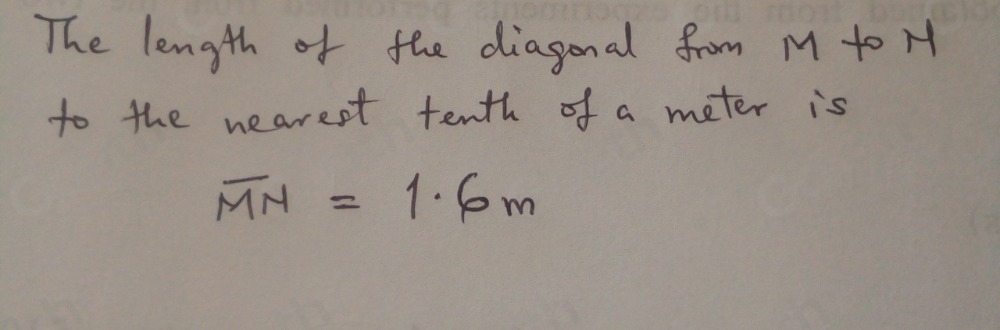 The length of the diagonal from M to N
to the nearest tenth of a meter is
M̅N̅ = 1.6m